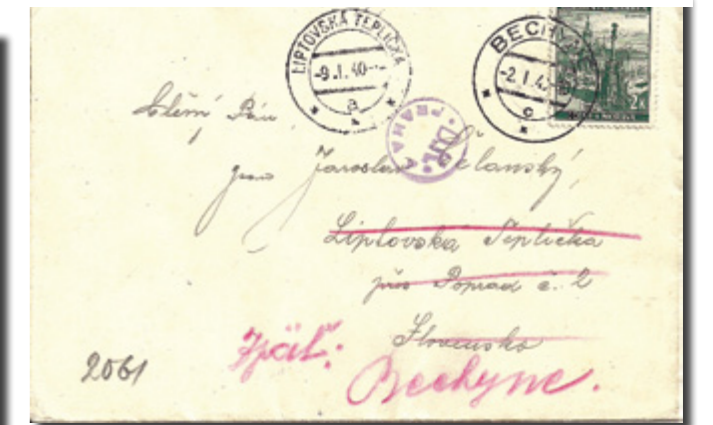 LIPTOVSKÁ TEPLIČKA
-9.I.40-
a
BECHYNĚ
-2.I.4
c
PRAHA
Ctěný Pán
pan Jaroslav Želanský,
Liptovska Teplička
přes Poprad č. 2
Slovensko
Zpäť:
Bechyne.
2061